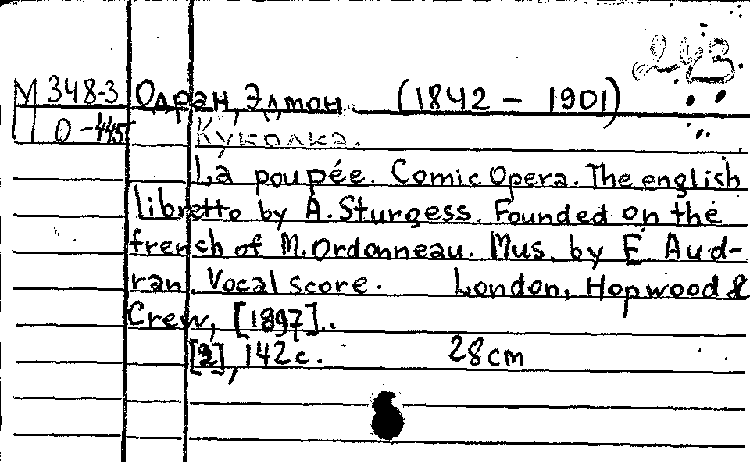 243
М 348-3 Одран, Эдмон (1842 – 1901)
О -445 Куколка.
La poupée. Comic Opera. The english
libretto by A. Sturgess. Founded on the
french of M. Ordonneau. Mus. by E. Aud-
ran. Vocal score. London, Hopwood &
Crew, [1897].
[2], 142 с. 28 cm